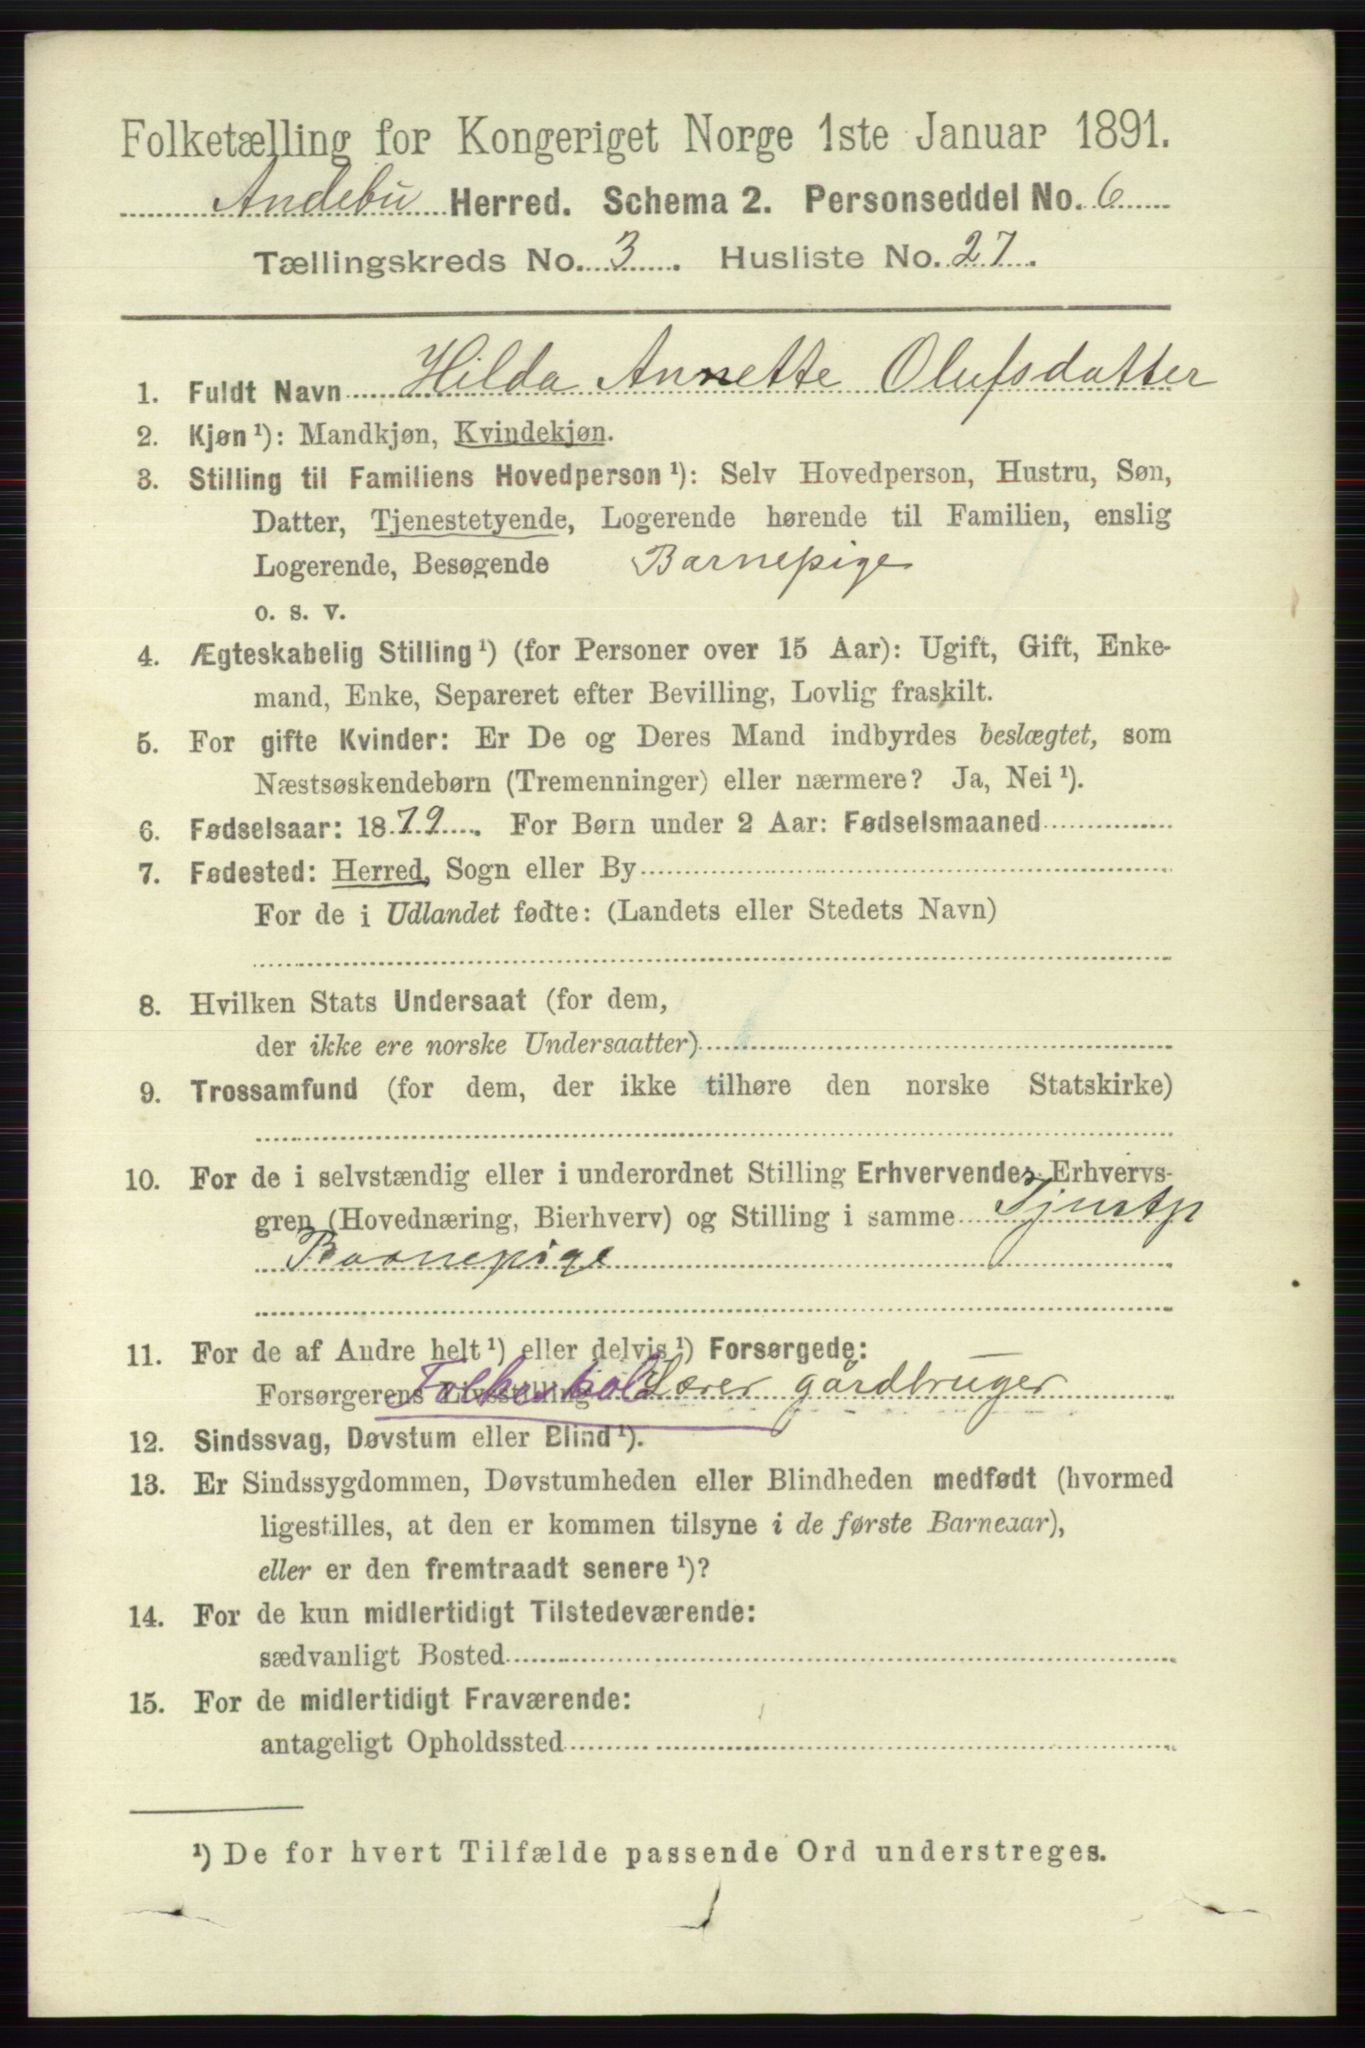 Folketælling for Kongeriget Norge 1ste Januar 1891.
Andebu Herred. Schema 2. Personseddel No. 6
Tællingskreds No. 3. Husliste No. 27.
1. Fuldt Navn Hilda Annette Olufsdatter
2. Kjøn¹): Mandkjøn, Kvindekjøn.
3. Stilling til Familiens Hovedperson¹): Selv Hovedperson, Hustru, Søn,
Datter, Tjenestetyende, Logerende hørende til Familien, enslig
Logerende, Besøgende Barnepige
o. s. v.
4. Ægteskabelig Stilling¹) (for Personer over 15 Aar): Ugift, Gift, Enke-
mand, Enke, Separeret efter Bevilling, Lovlig fraskilt.
5. For gifte Kvinder: Er De og Deres Mand indbyrdes beslægtet, som
Næstsøskendebørn (Tremenninger) eller nærmere? Ja, Nei¹).
6. Fødselsaar: 1879. For Børn under 2 Aar: Fødselsmaaned
7. Fødested: Herred, Sogn eller By
For de i Udlandet fødte: (Landets eller Stedets Navn)
8. Hvilken Stats Undersaat (for dem,
der ikke ere norske Undersaatter)
9. Trossamfund (for dem, der ikke tilhøre den norske Statskirke)
10. For de i selvstændig eller i underordnet Stilling Erhvervende: Erhvervs-
gren (Hovednæring, Bierhverv) og Stilling i samme
Barnepige
11. For de af Andre helt¹) eller delvis¹) Forsørgede:
Forsørgerens Livsstilling Lærer gårdbruger
12. Sindssvag, Døvstum eller Blind¹).
13. Er Sindssygdommen, Døvstumheden eller Blindheden medfødt (hvormed
ligestilles, at den er kommen tilsyne i de første Barneaar),
eller er den fremtraadt senere¹)?
14. For de kun midlertidigt Tilstedeværende:
sædvanligt Bosted
15. For de midlertidigt Fraværende:
antageligt Opholdssted
¹) De for hvert Tilfælde passende Ord understreges.